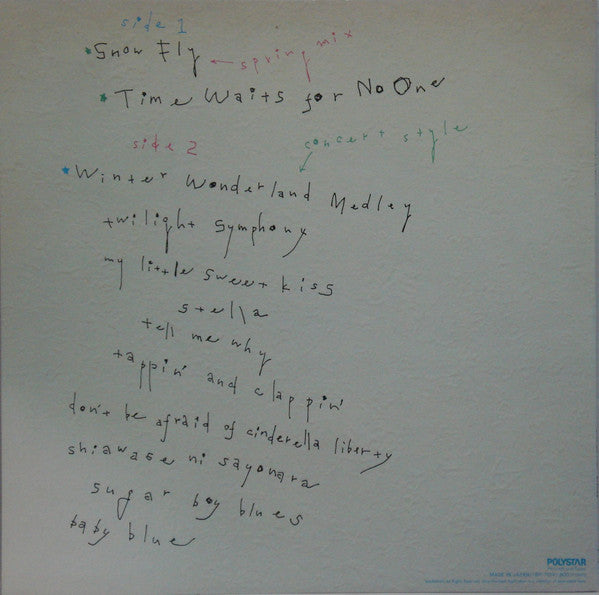 side 1
*Snow Fly ← spring mix
*Time Waits for No One
side 2
concert style
*Winter Wonderland Medley
twilight symphony
my little sweet kiss
stella
tell me why
tappin' and clappin'
don't be afraid of cinderella liberty
shiawase ni sayonara
sugar boy blues
baby blue
POLYSTAR
MADE IN JAPAN